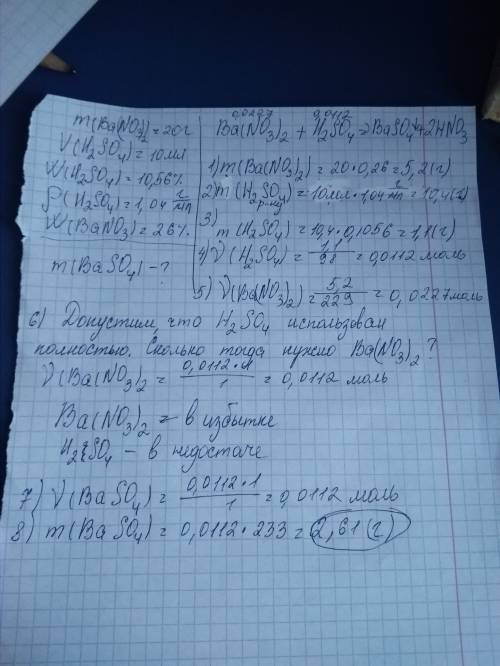 m(Ba(NO3)2)=20г
V(H2SO4)=10мл
W(H2SO4)=10,56%
ρ(H2SO4)=1,04 г/мл
W(BaNO3)=26%
m(BaSO4)-?
0,0227 0,0112
Ba(NO3)2 + H2SO4 → BaSO4↓+2HNO3
1) m(Ba(NO3)2)=20·0,26=5,2(г)
2) m(H2SO4)р-ну=10мл·1,04 г/мл=10,4(г)
3) m(H2SO4)=10,4·0,1056=1,1(г)
4) ν(H2SO4)=1,1/98=0,0112 моль
5) ν(Ba(NO3)2)=5,2/229=0,0227моль
6) Допустим, что H2SO4 использован
полностью. Сколько тогда нужно Ba(NO3)2?
ν(Ba(NO3)2=0,0112·1/1=0,0112 моль
Ba(NO3)2 – в избытке
H2SO4 – в недостаче
7) ν(BaSO4)=0,0112·1/1=0,0112 моль
8) m(BaSO4)=0,0112·233=2,61(г)